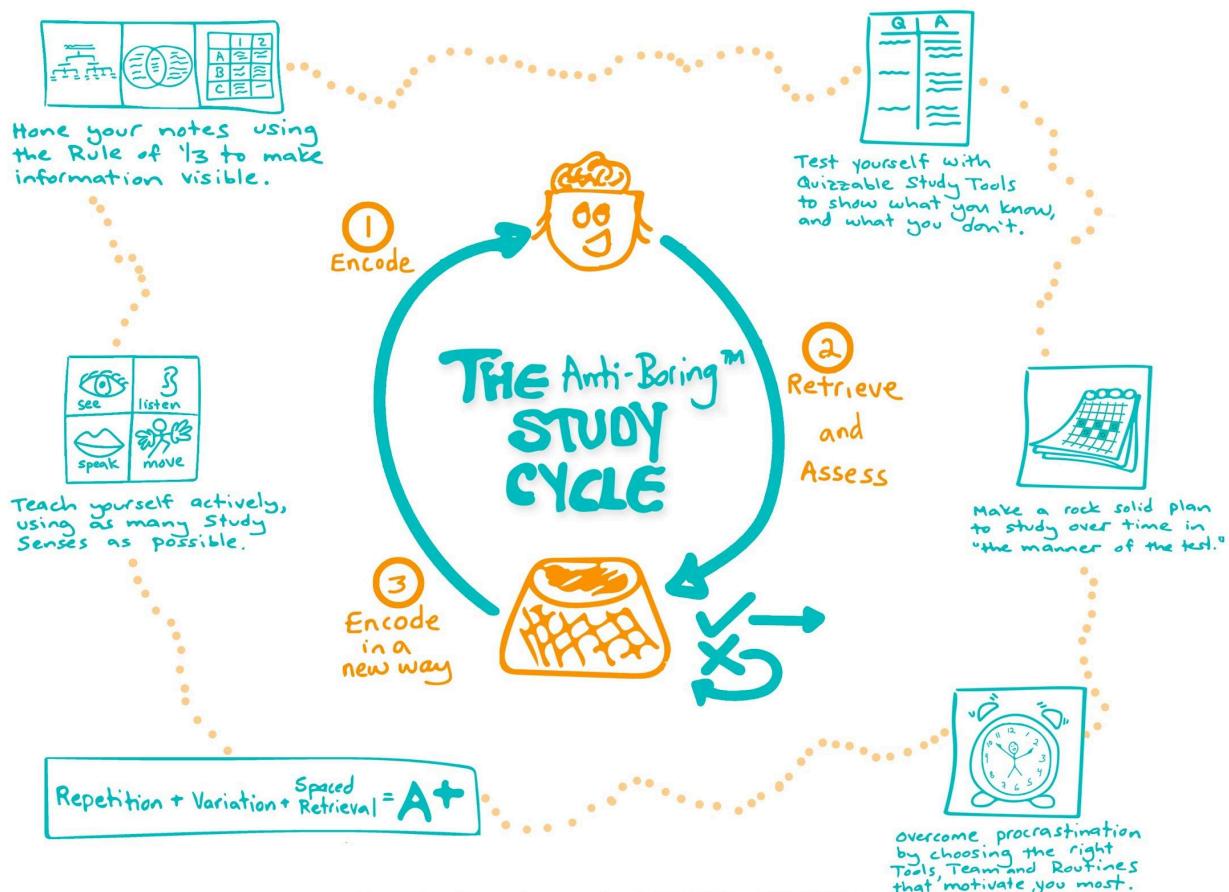 1 2
A
B
C
Hone your notes using
the Rule of 1/3 to make
information visible.
Q A
Test yourself with
Quizzable Study Tools
to show what you know,
and what you don't.
1
Encode
THE Anti-Boring™
STUDY
CYCLE
2
Retrieve
and
Assess
3
Encode
in a
new way
see
listen
speak
move
Teach yourself actively,
using as many Study
Senses as possible.
Make a rock solid plan
to study over time in
"the manner of the test."
Repetition + Variation + Spaced Retrieval = A+
12 1 2 3 4 5 6 7 8 9 10 11
Overcome procrastination
by choosing the right
Tools, Team and Routines
that motivate you most.